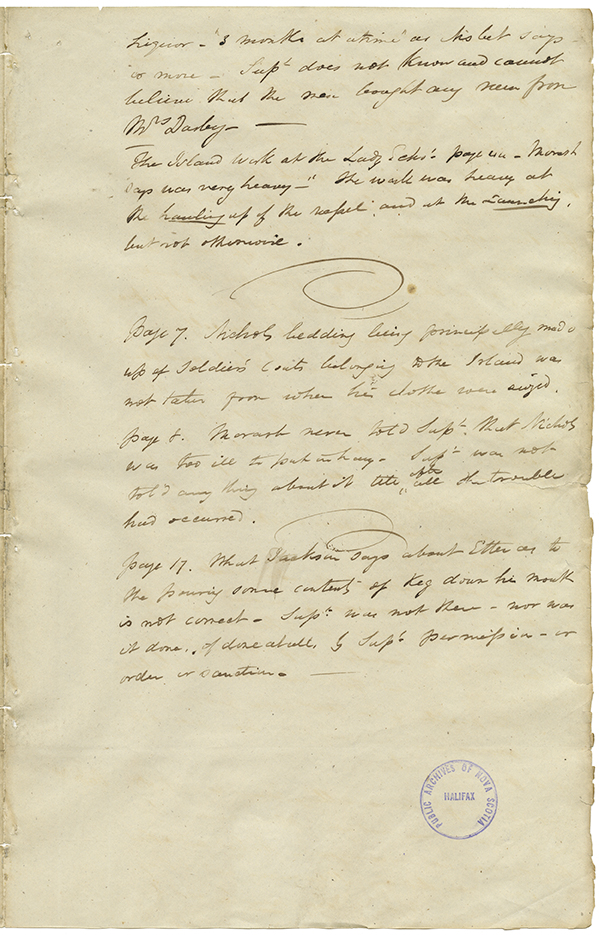 Liquor - "3 months at a time" as Nisbet says
or more - Supt. does not know and cannot
believe that the men bought any new from
Mrs Darby -
The Island work at the Lady Echo's page - Morash
says was very heavy -" The work was heavy at
the hauling up of the vessel, and at the Launching,
but not otherwise.
Page 7. Nichols bedding being principally made
up of Soldiers Coats belonging to the Island was
not taken from when his clothe were seized.
page 8. Morash never told Supt. that Nichols
was too ill to put in hay - Supt. was not
told any thing about it till after all the trouble
had occurred.
page 17. What Jackson says about Etter as to
the pouring some contents of Keg down his mouth
is not correct - Supt. was not there - nor was
it done, if done at all, by Supt. permission - or
order or sanction -
PUBLIC ARCHIVES OF NOVA SCOTIA
HALIFAX